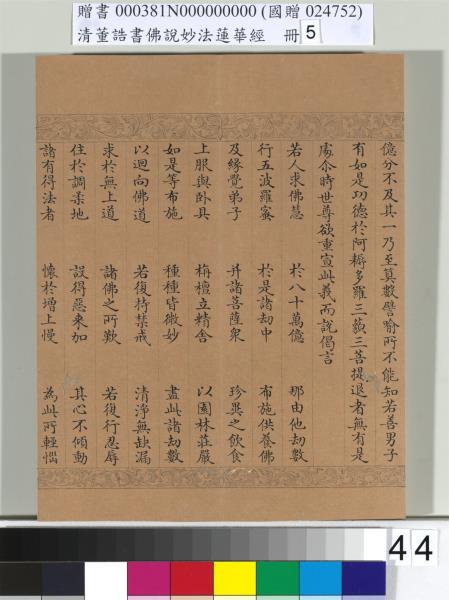 贈書 000381N000000000 (國贈 024752)
清董誥書佛說妙法蓮華經 冊 5
億分不及其一乃至算數譬喻所不能知若善男子
有如是功德於阿耨多羅三藐三菩提退者無有是
處尒時世尊欲重宣此義而說偈言
若人求佛慧 於八十萬億 那由他劫數
行五波羅蜜 於是諸劫中 布施供養佛
及緣覺弟子 并諸菩薩衆 珍異之飲食
上服與卧具 栴檀立精舍 以園林莊嚴
如是等布施 種種皆微妙 盡此諸劫數
以迴向佛道 若復持禁戒 清淨無缺漏
求於無上道 諸佛之所歎 若復行忍辱
住於調柔地 設衆惡來加 其心不傾動
諸有得法者 懷於增上慢 為此所輕惱
44